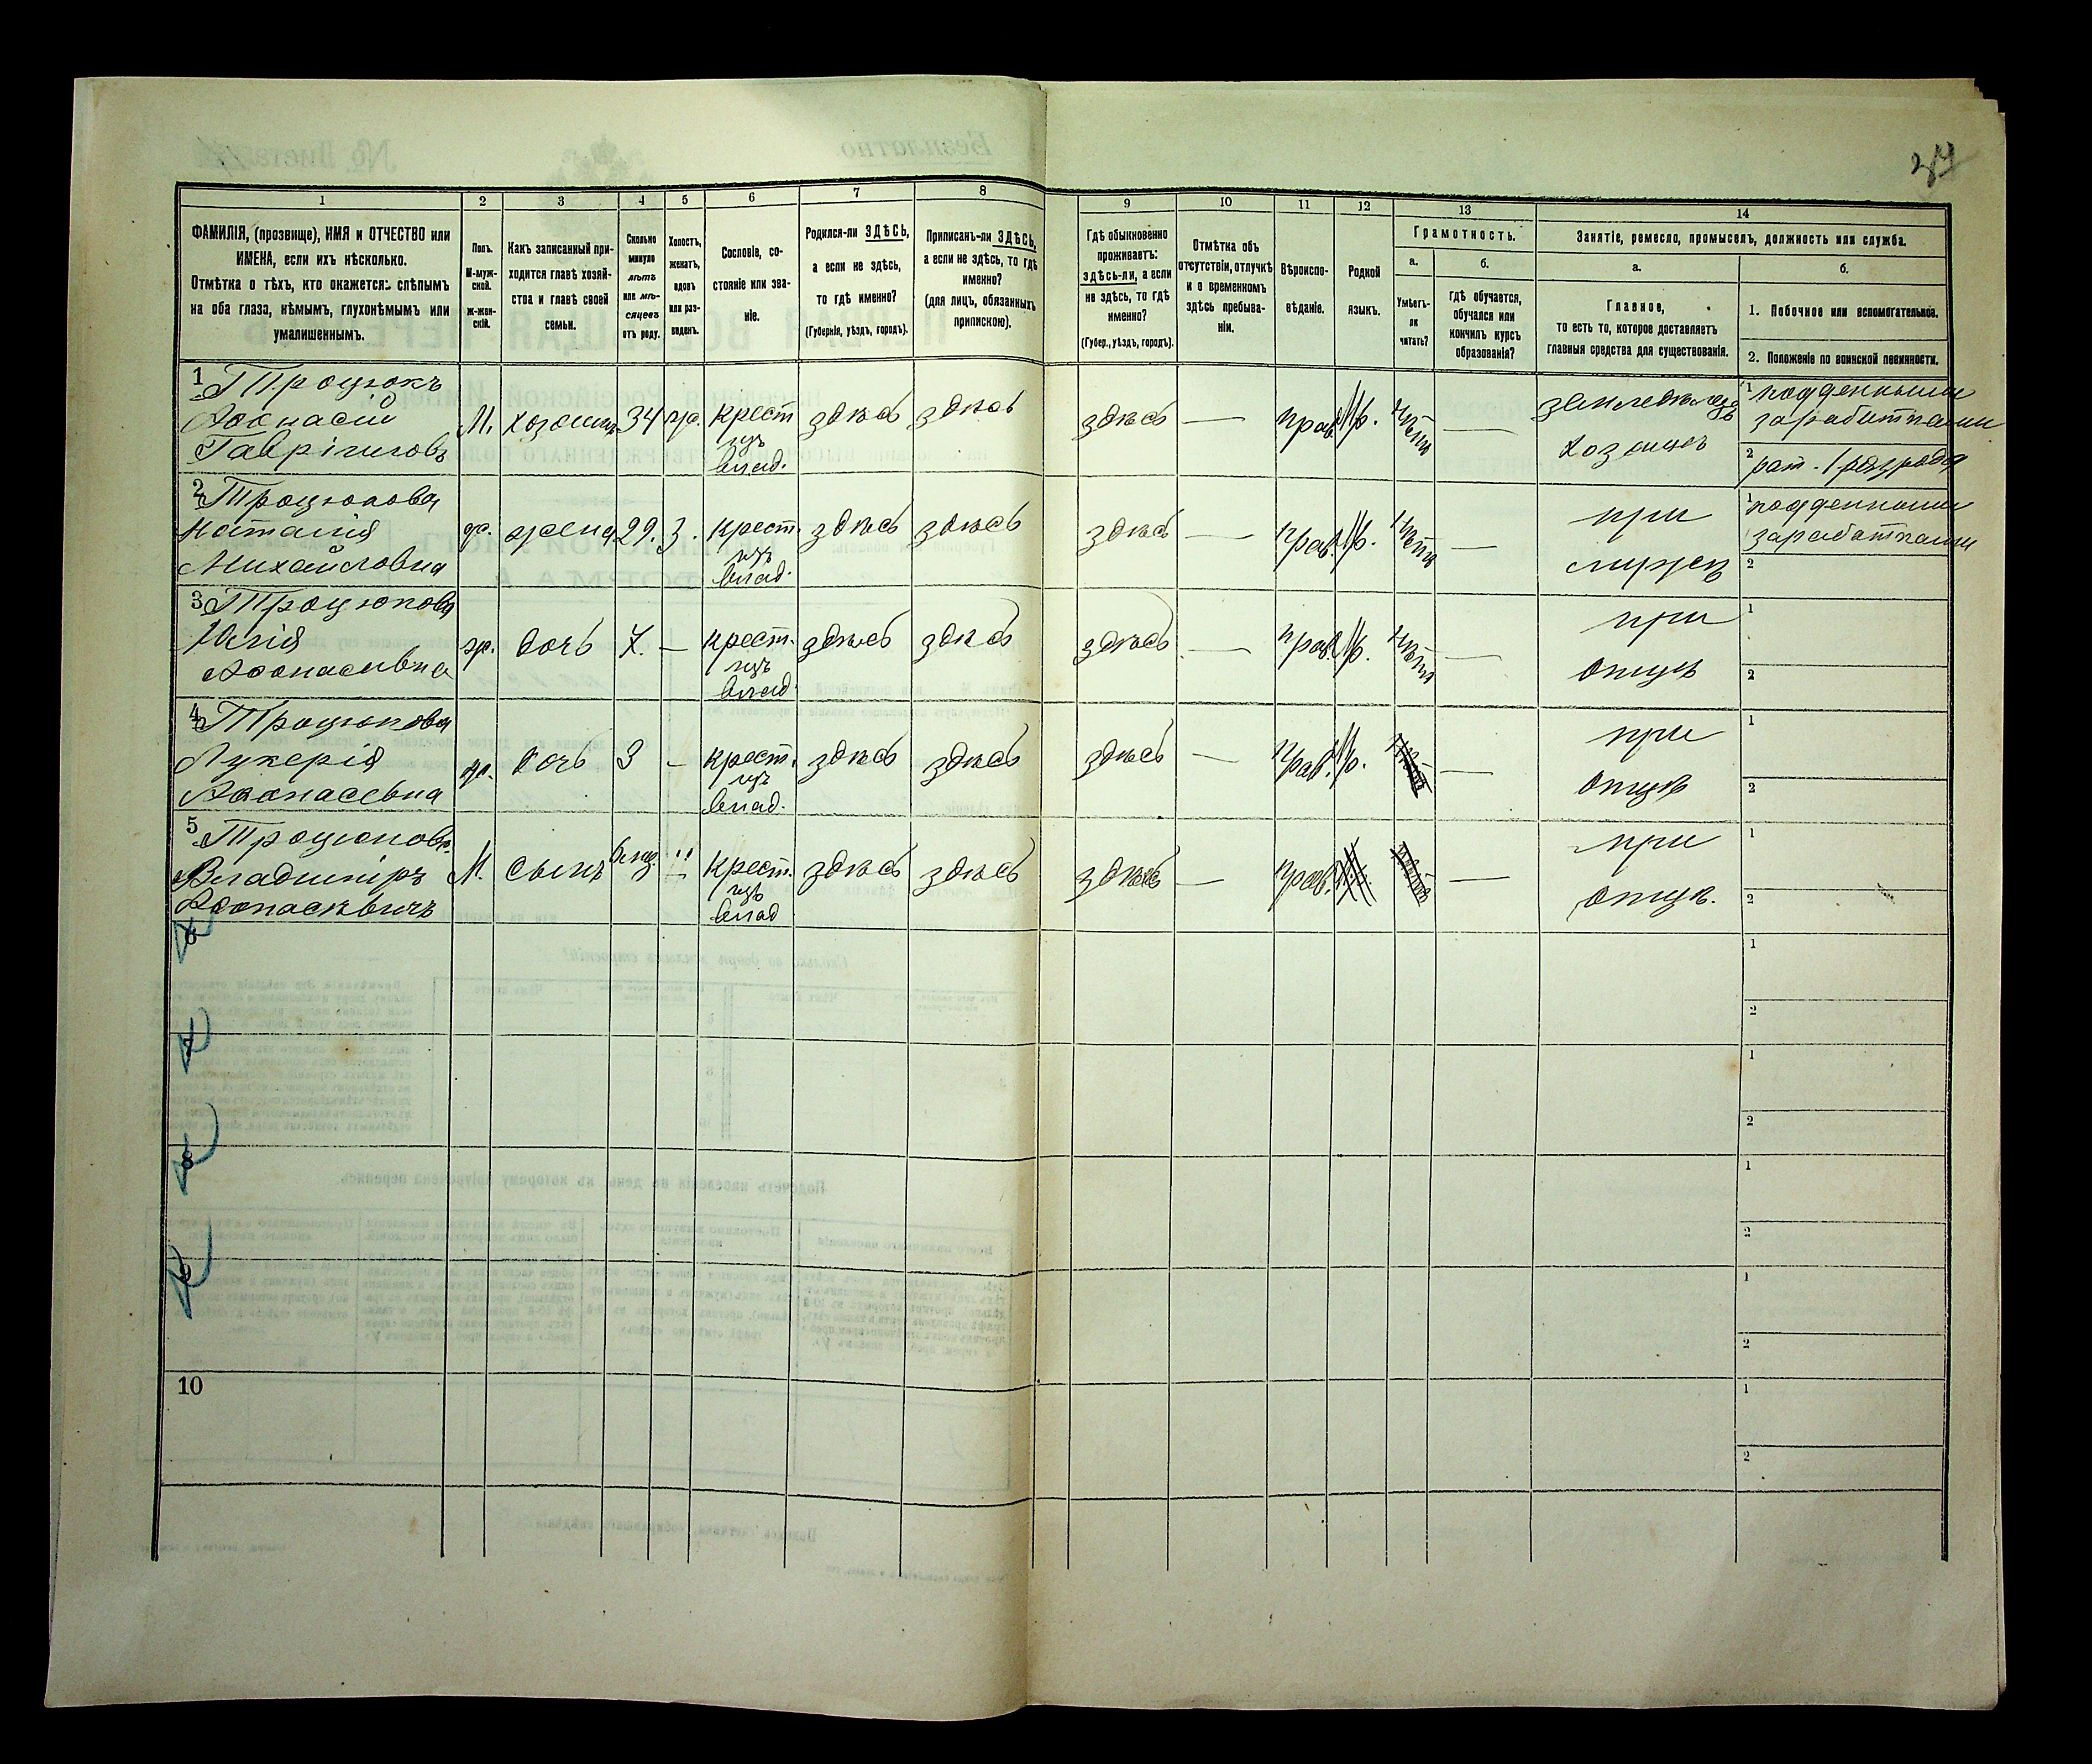 24
1
2
3
4
5
6
7
8
ФАМИЛІЯ, (прозвище), ИМЯ и ОТЧЕСТВО или
ИМЕНА, если ихъ нѣсколько.
Отмѣтка о тѣхъ, кто окажется: слѣпымъ
на оба глаза, нѣмымъ, глухонѣмымъ или
умалишеннымъ.
Полъ.
М-муж-
ской.
ж-жен-
скій.
Какъ записанный при-
ходится главѣ хозяй-
ства и главѣ своей
семьи.
Сколько
минуло
лѣтъ
или мѣ-
сяцевъ
отъ роду.
Холостъ,
женатъ,
вдовъ
или раз-
веденъ.
Сословіе, со-
стояніе или зва-
ніе.
Родился-ли ЗДѢСЬ,
а если не здѣсь,
то гдѣ именно?
(Губернія, уѣздъ, городъ).
Приписанъ-ли ЗДѢСЬ,
а если не здѣсь, то гдѣ
именно?
(для лицъ, обязанныхъ
припискою).
9
10
11
12
13
14
Гдѣ обыкновенно
проживаетъ:
здѣсь-ли, а если
не здѣсь, то гдѣ
именно?
(Губер., уѣздъ, городъ).
Отмѣтка объ
отсутствіи, отлучкѣ
и о временномъ
здѣсь пребыва-
ніи.
Вѣроиспо-
вѣданіе.
Родной
языкъ.
Грамотность.
а.
б.
Умѣетъ-
ли
читать?
Гдѣ обучается,
обучался или
кончилъ курсъ
образованія?
Занятіе, ремесло, промыселъ, должность или служба.
а.
б.
Главное,
то есть то, которое доставляетъ
главныя средства для существованія.
1. Побочное или вспомогательное.
2. Положеніе по воинской повинности.
1 Троцюкъ
Аѳонасій
Гавріиловъ
М.
хозяинъ
34
ж.
крест
изъ
влад.
здѣсь
здѣсь
здѣсь
—
прав.
М/р.
нѣтъ
—
земледѣлецъ
хозяинъ
1 подденными
заработками
2 рат. 1 разряда
2 Троцюкова
Наталія
Михайловна
ж.
жена
29.
З.
крест.
изъ
влад.
здѣсь
здѣсь
здѣсь
—
прав.
М/р.
нѣтъ
—
при
мужѣ
1 подденными
заработками
2
3 Троцюкова
Юлія
Аѳонасьевна
ж.
дочь
7.
—
крест.
изъ
влад.
здѣсь
здѣсь
здѣсь
—
прав.
М/р.
нѣтъ
—
при
отцѣ
1
2
4 Троцюкова
Лукерія
Аѳонасевна
ж.
дочь
3
—
крест.
изъ
влад.
здѣсь
здѣсь
здѣсь
—
прав.
М/р.
—
при
отцѣ
1
2
5 Троцюковъ
Владиміръ
Аѳонасьвичъ
М.
сынъ
6 мц.
крест.
изъ
влад
здѣсь
здѣсь
здѣсь
—
прав.
—
при
отцѣ.
1
2
6
1
2
7
1
2
8
1
2
9
1
2
10
1
2